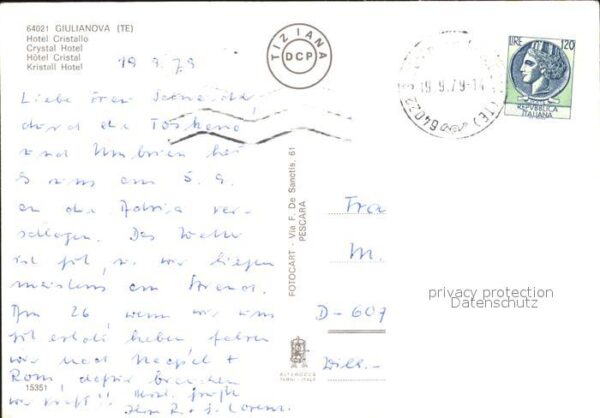 64021 GIULIANOVA (TE)
Hotel Cristallo
Crystal Hotel
Hôtel Cristal
Kristall Hotel
TIZIANA
DCP
LIRE 120
REPVBBLICA
ITALIANA
19.9.79
64022 (TE)
19.9.79
Liebe
durch die Toskana
und Umbrien hat
es uns am 5.9.
an die Adria ver-
schlagen. Das Wetter
ist gut, u. wir liegen
meistens am Strand.
Am 26, wenn wir uns
gut erholt haben fahren
wir nach Neapel +
Rom, dafür brauchen
wir Kraft!! Herzl. Grüße
Ihre R. + J. Lorenz
15351
FOTOCART - Via F. De Sanctis, 61
PESCARA
ALTEROCCA
TERNI - ITALY
Frau
M.
D-607
privacy protection
Datenschutz